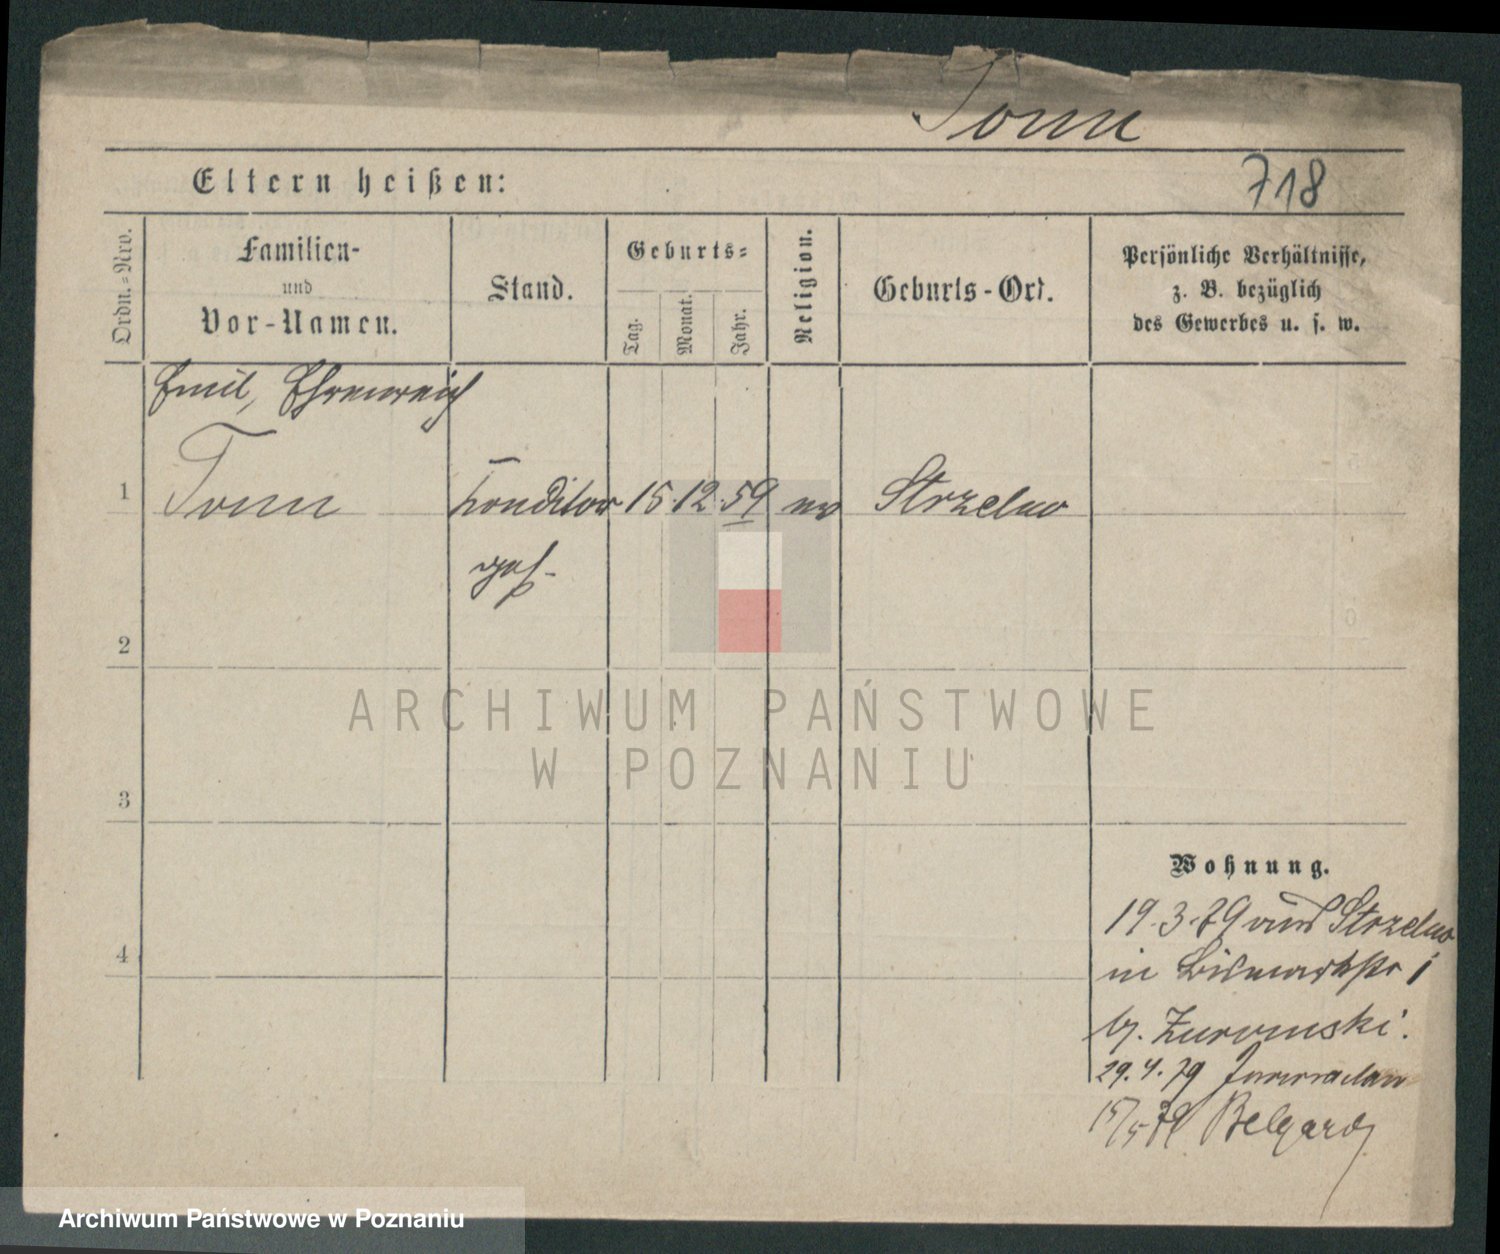 Tonn
Eltern heißen:
718
Ordn.=Nro.
Familien-
und
Vor-Namen.
Stand.
Geburts=
Tag.
Monat.
Jahr.
Religion.
Geburts-Ort.
Persönliche Verhältnisse,
z. B. bezüglich
des Gewerbes u. s. w.
Emil, Ehrenreich
1
Tonn
Konditor
15
12
59
ev
Strzelno
geh.
2
ARCHIWUM PAŃSTWOWE
W POZNANIU
3
Wohnung.
19.3.79 aus Strzelno
4
in Bismarkstr 1
b. Zuromski.
29.4.79 Inowraclaw
15/5 79 Belgard
Archiwum Państwowe w Poznaniu